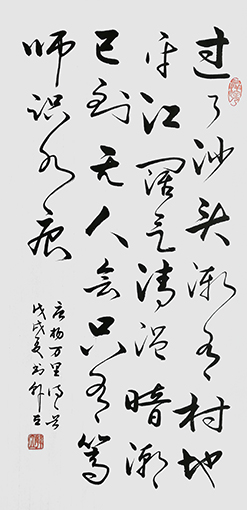 过了沙头渐有村地
平江阔气清温暗潮
已到无人会只有篙
师识水痕
杨万里诗
戊戌夏